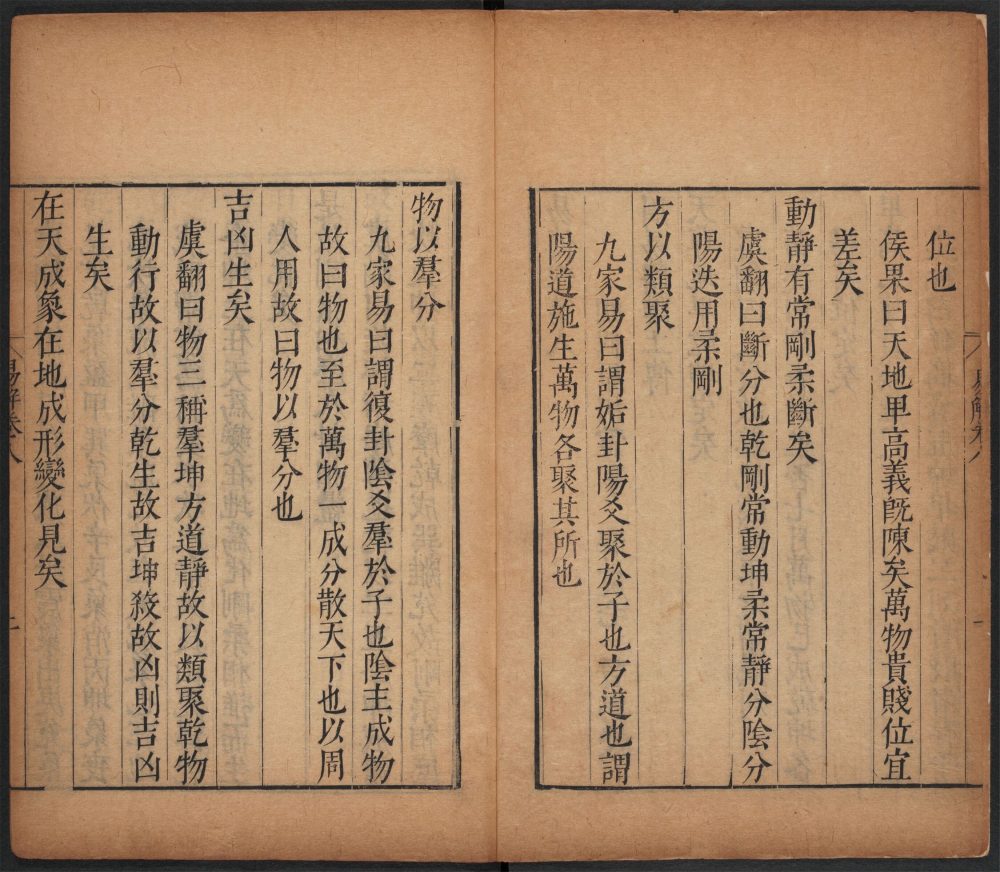 位也
侯果曰天地卑高義旣陳矣萬物貴賤位宜
差矣
動靜有常剛柔斷矣
虞翻曰斷分也乾剛常動坤柔常靜分陰分
陽迭用柔剛
方以類聚
九家易曰謂姤卦陽爻聚於子也方道也謂
陽道施生萬物各聚其所也
物以羣分
九家易曰謂復卦陰爻羣於子也陰主成物
故曰物也至於萬物一成分散天下也以周
人用故曰物以羣分也
吉凶生矣
虞翻曰物三稱羣坤方道靜故以類聚乾物
動行故以羣分乾生故吉坤殺故凶則吉凶
生矣
在天成象在地成形變化見矣